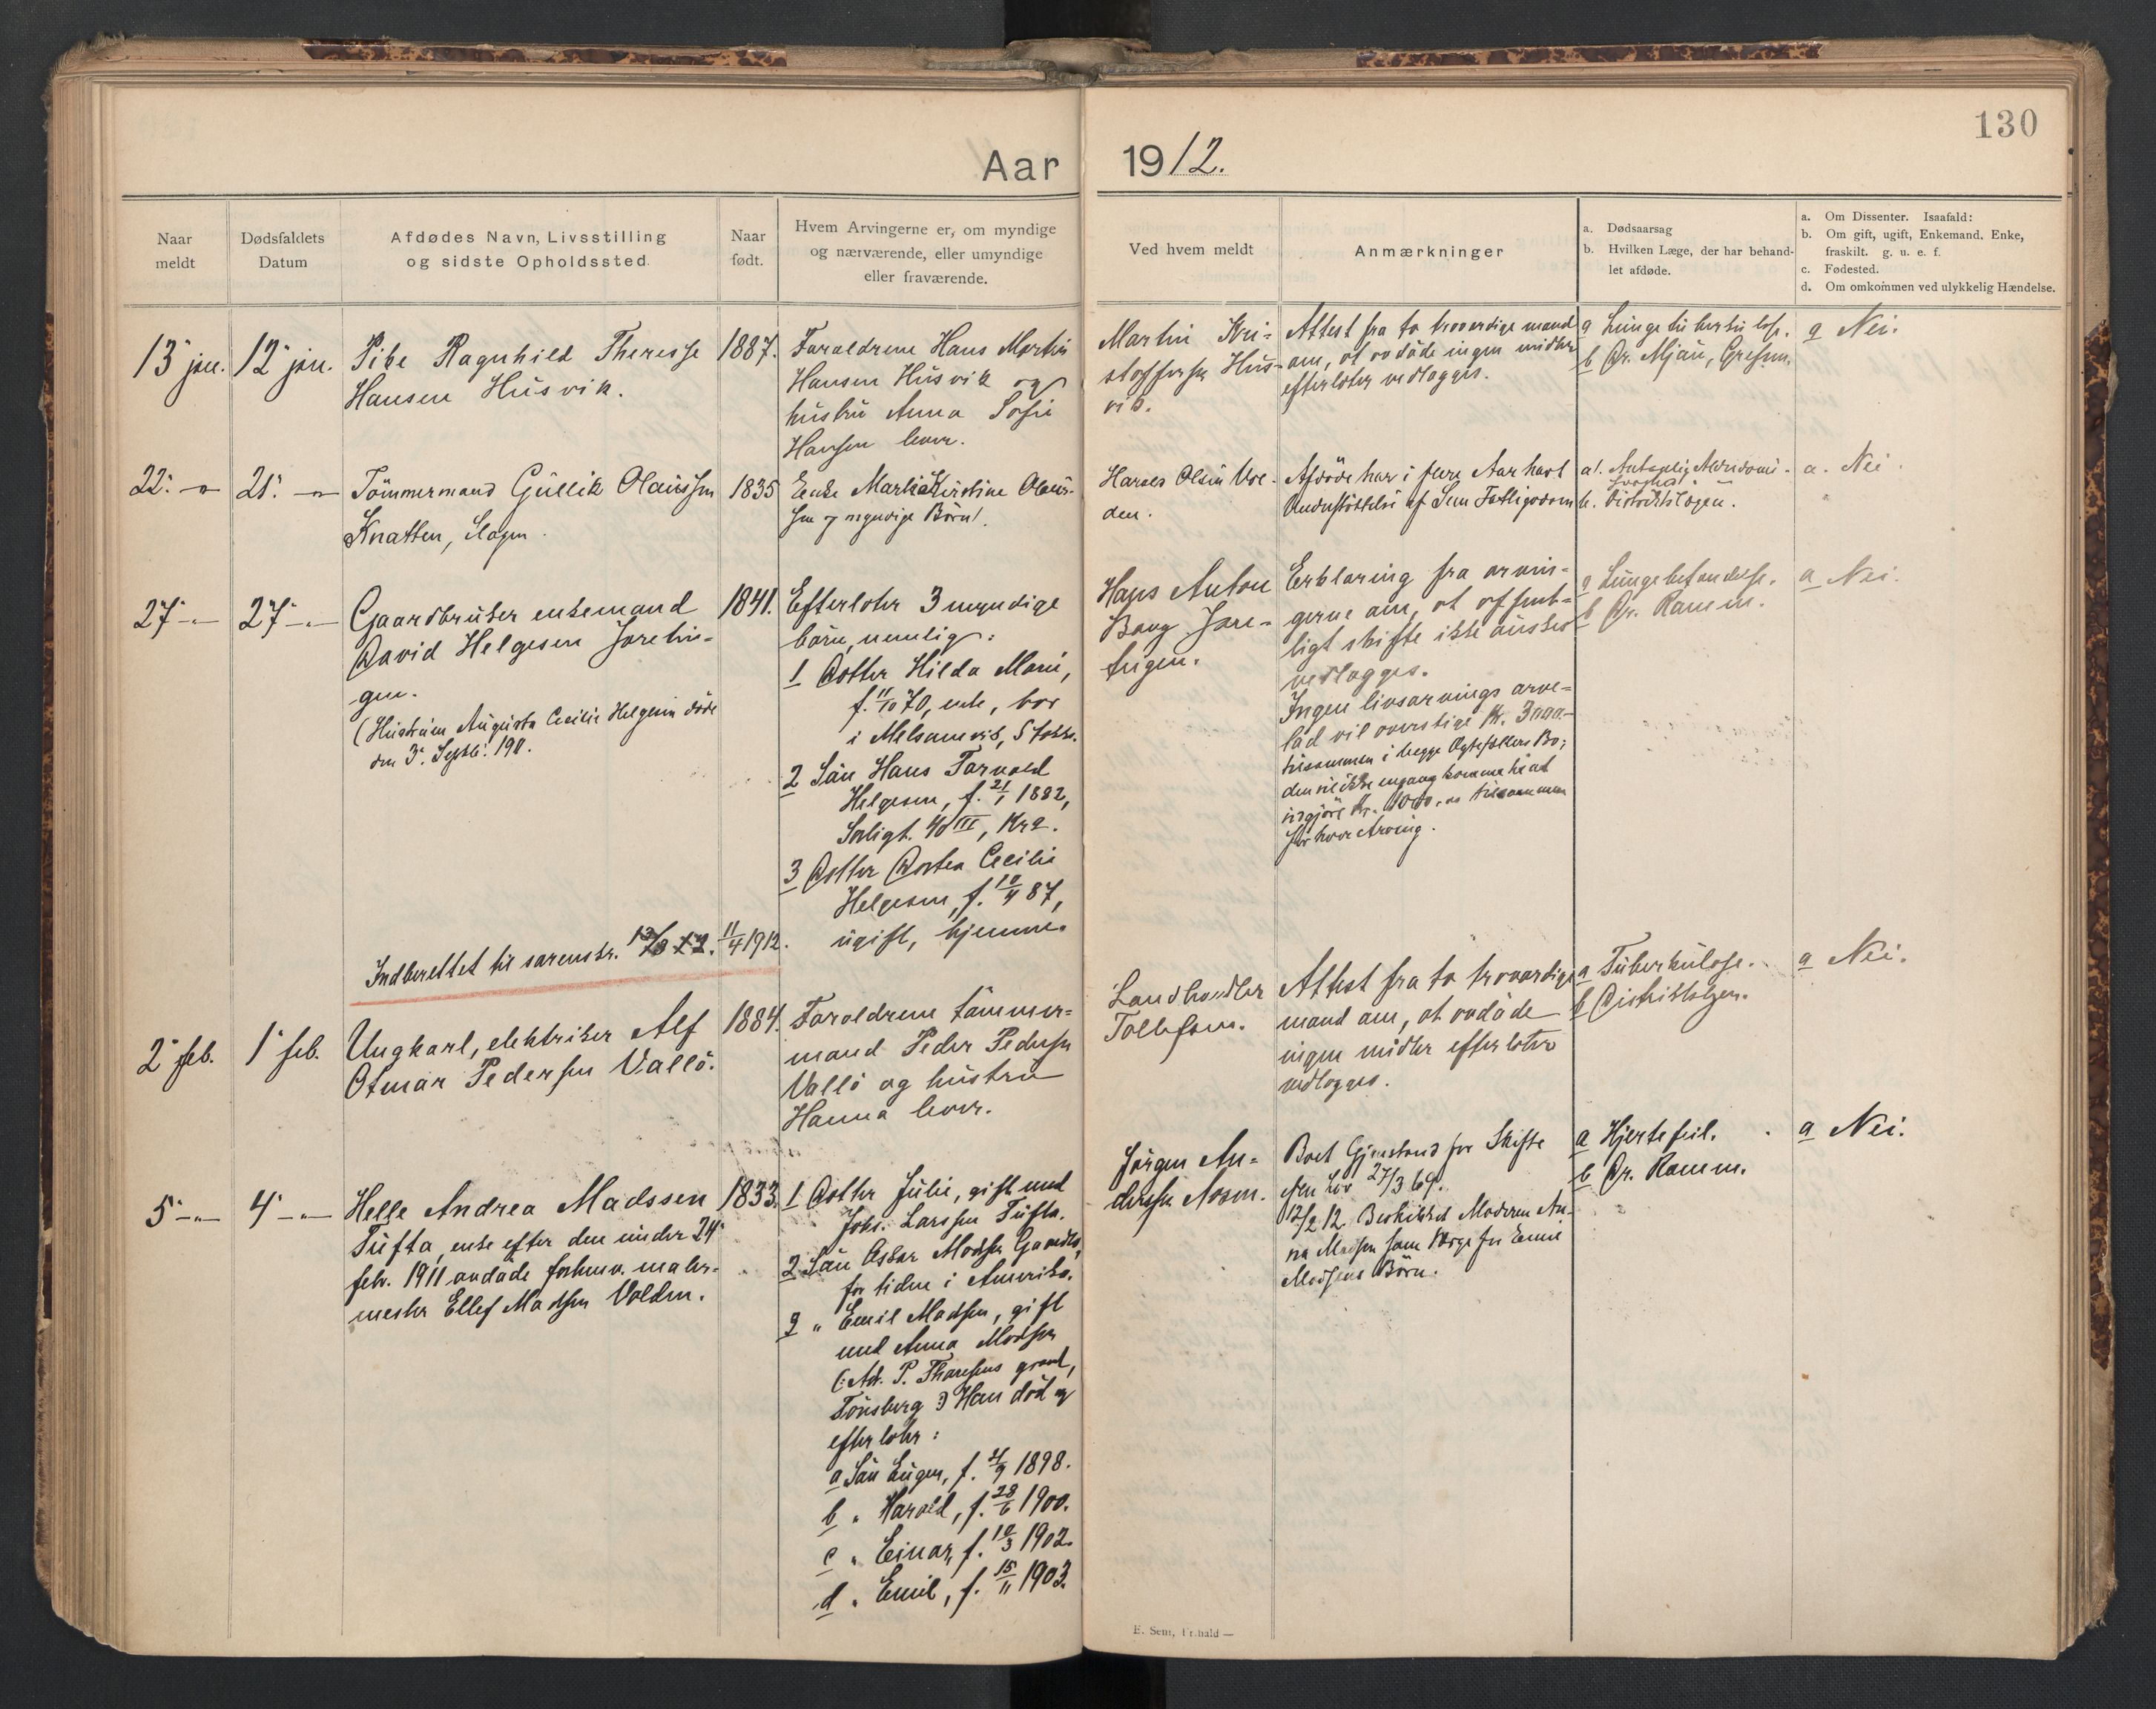 130
Aar 1912.
Naar
meldt
Dødsfaldets
Datum
Afdødes Navn, Livsstilling
og sidste Opholdssted.
Naar
født.
Hvem Arvingerne er, om myndige
og nærværende, eller umyndige
eller fraværende.
Ved hvem meldt
Anmærkninger
a. Dødsaarsag
b. Hvilken Læge, der har behand-
let afdøde.
a. Om Dissenter. Isaafald:
b. Om gift, ugift, Enkemand, Enke,
fraskilt. g. u. e. f.
c. Fødested.
d. Om omkommen ved ulykkelig Hændelse.
13 jan.
12 jan.
Pike Ragnhild Theresse
Hansen Husvik.
1887.
Foreldrene Hans Martin
Hansen Husvik og
hustru Anna Sofie
Hansen lever.
Martin Kri-
stoffersen Hus-
vik.
Attest fra to troverdige mænd
om, at avdøde ingen midler
efterlater vedlægges.
a Lungetuberkulose.
b Dr. Mjøen, Gresmn.
a Nei.
22. — " —
21. — " —
Tømmermand Gullik Olaussen
Knatten, Slagen.
1835
Enke Martia Kirstine Olaus-
sen og myndige Børn.
Hanses Olsen Vol-
den.
Afdøde har i flere Aar havt
Understøttelse af Sem Fattigvæsen
a. Antagelig Alderdoms-
svaghed
b. Distriktslægen.
a. Nei.
27 — " —
27 — " —
Gaardbruker enkemand
David Helgesen Jaretin-
gen.
(Hustruen Augusta Cecilie Helgesen døde
den 3. Septbr. 191.
1841.
Efterlater 3 myndige
børn, nemlig:
1 Datter Hilda Marie,
f. 11/10 70, enke, bor
i Melsomvik, Stokke.
2 Søn Hans Torvald
Helgesen, f. 21/1 1882,
Sorligt. 40 III, Kra.
3 Datter Dortea Cecilie
Helgesen, f. 10/4 87,
ugift, hjemme.
Hans Anton
Bang Jare-
tingen.
Erklæring fra arvin-
gerne om, at offent-
ligt skifte ikke ønskes
vedlægges.
Ingen livsarvings arve-
lod vil overstige Kr. 3000.-
tilsammen i begge Ægtefællers Bo;
den vil ikke engang komme til at
utgjøre Kr. 1000,00 tilsammen
for hver Arving.
a Lungebetændelse.
b Dr. Ramm.
a Nei.
Indberettet til sorenskr. 13/3 12. 11/4 1912.
2 feb.
1 feb.
Ungkarl, elektriker Alf
Otmar Pedersen Vallø.
1884.
Foreldrene tømmer-
mand Peder Pedersen
Vallø og hustru
Hanna lever.
Landhandler
Tollefsen.
Attest fra to troverdige
mænd om, at avdøde
ingen midler efterlater
vedlægges.
a Tuberkulose.
b Distriktslægen.
a Nei.
5 — " —
4 — " —
Helle Andrea Madssen
Tufta, enke efter den under 24
feb. 1911 avdøde forhenv. maler-
mester Ellef Madsen Volden.
1833.
1 Datter Julie, gift med
Johs. Larssen Tufta.
2 Søn Oskar Madsen Gaardlos,
for tiden i Amerika.
3 " Emil Madsen, gift
med Anna Madsen
(: Adr. P. Thoresens graad,
Tønsberg :) Han død og
efterlater:
a Søn Eugen, f. 4/9 1898.
b " Harald, f. 28/6 1900.
c " Einar, f. 10/3 1902.
d " Emil, f. 15/11 1903.
Jørgen An-
dersen Aasen.
Boet Gjenstand for Skifte
efter Lov 27/3 69.
12/2 12 Beskikket Moderen An-
na Madsen som Værge for Emil
Madsens Børn.
a Hjertefeil.
b Dr. Ramm.
a Nei.
E. Sem, Fr.hald —